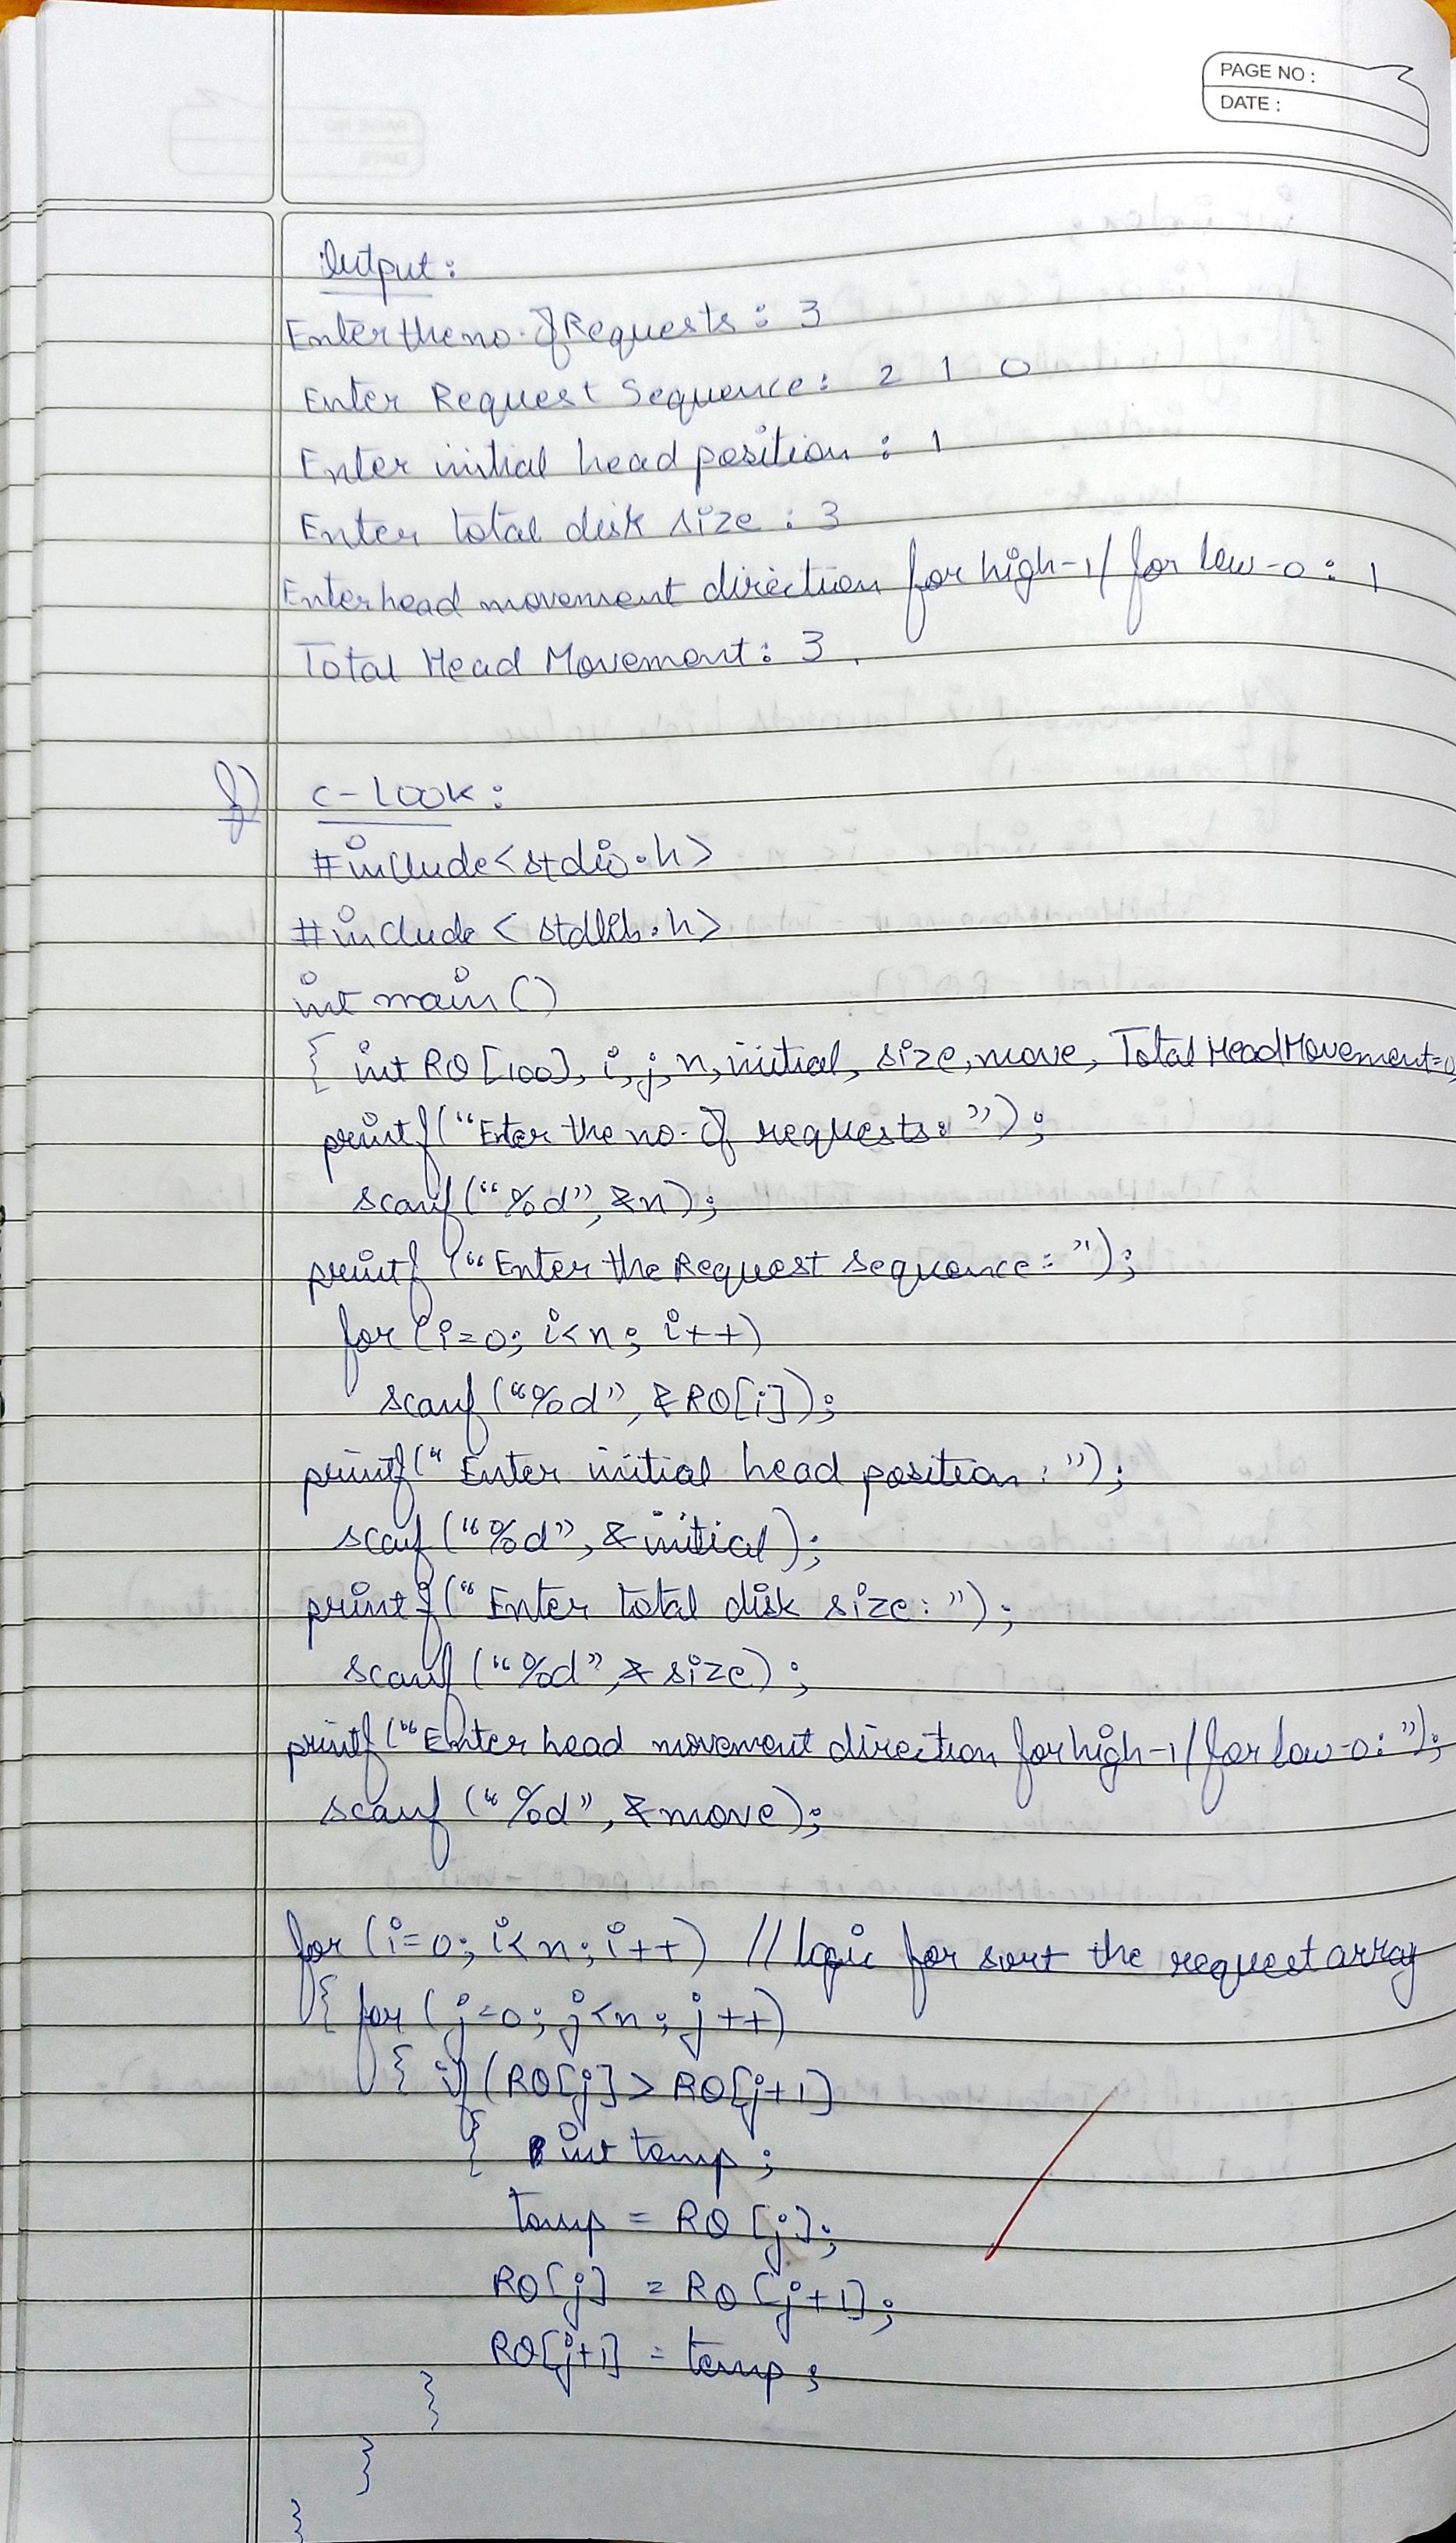 PAGE NO :
DATE :
Output:
Enter the no. of Requests : 3
Enter Request Sequence : 2 1 0
Enter initial head position : 1
Enter total disk size : 3
Enter head movement direction for high-1/ for low-0 : 1
Total Head Movement: 3.
f) C-LOOK:
#include<stdio.h>
#include <stdlib.h>
int main()
{ int RQ[100], i, j, n, initial, size, move, TotalHeadMovement=0
printf("Enter the no. of requests: ");
scanf("%d", &n);
printf ("Enter the Request sequence: ");
for (i=0; i<n; i++)
scanf("%d", &RQ[i]);
printf(" Enter initial head position : ");
scanf("%d", &initial);
printf("Enter total disk size: ");
scanf("%d", & size);
printf("Enter head movement direction for high-1/ for low-0: ");
scanf ("%d", &move);
for (i=0; i<n; i++) //logic for sort the request array
{ for (j=0; j<n; j++)
{ if (RQ[j] > RQ[j+1]
{ int temp;
temp = RQ[j];
RQ[j] = RQ[j+1];
RQ[j+1] = temp;
}
}
}